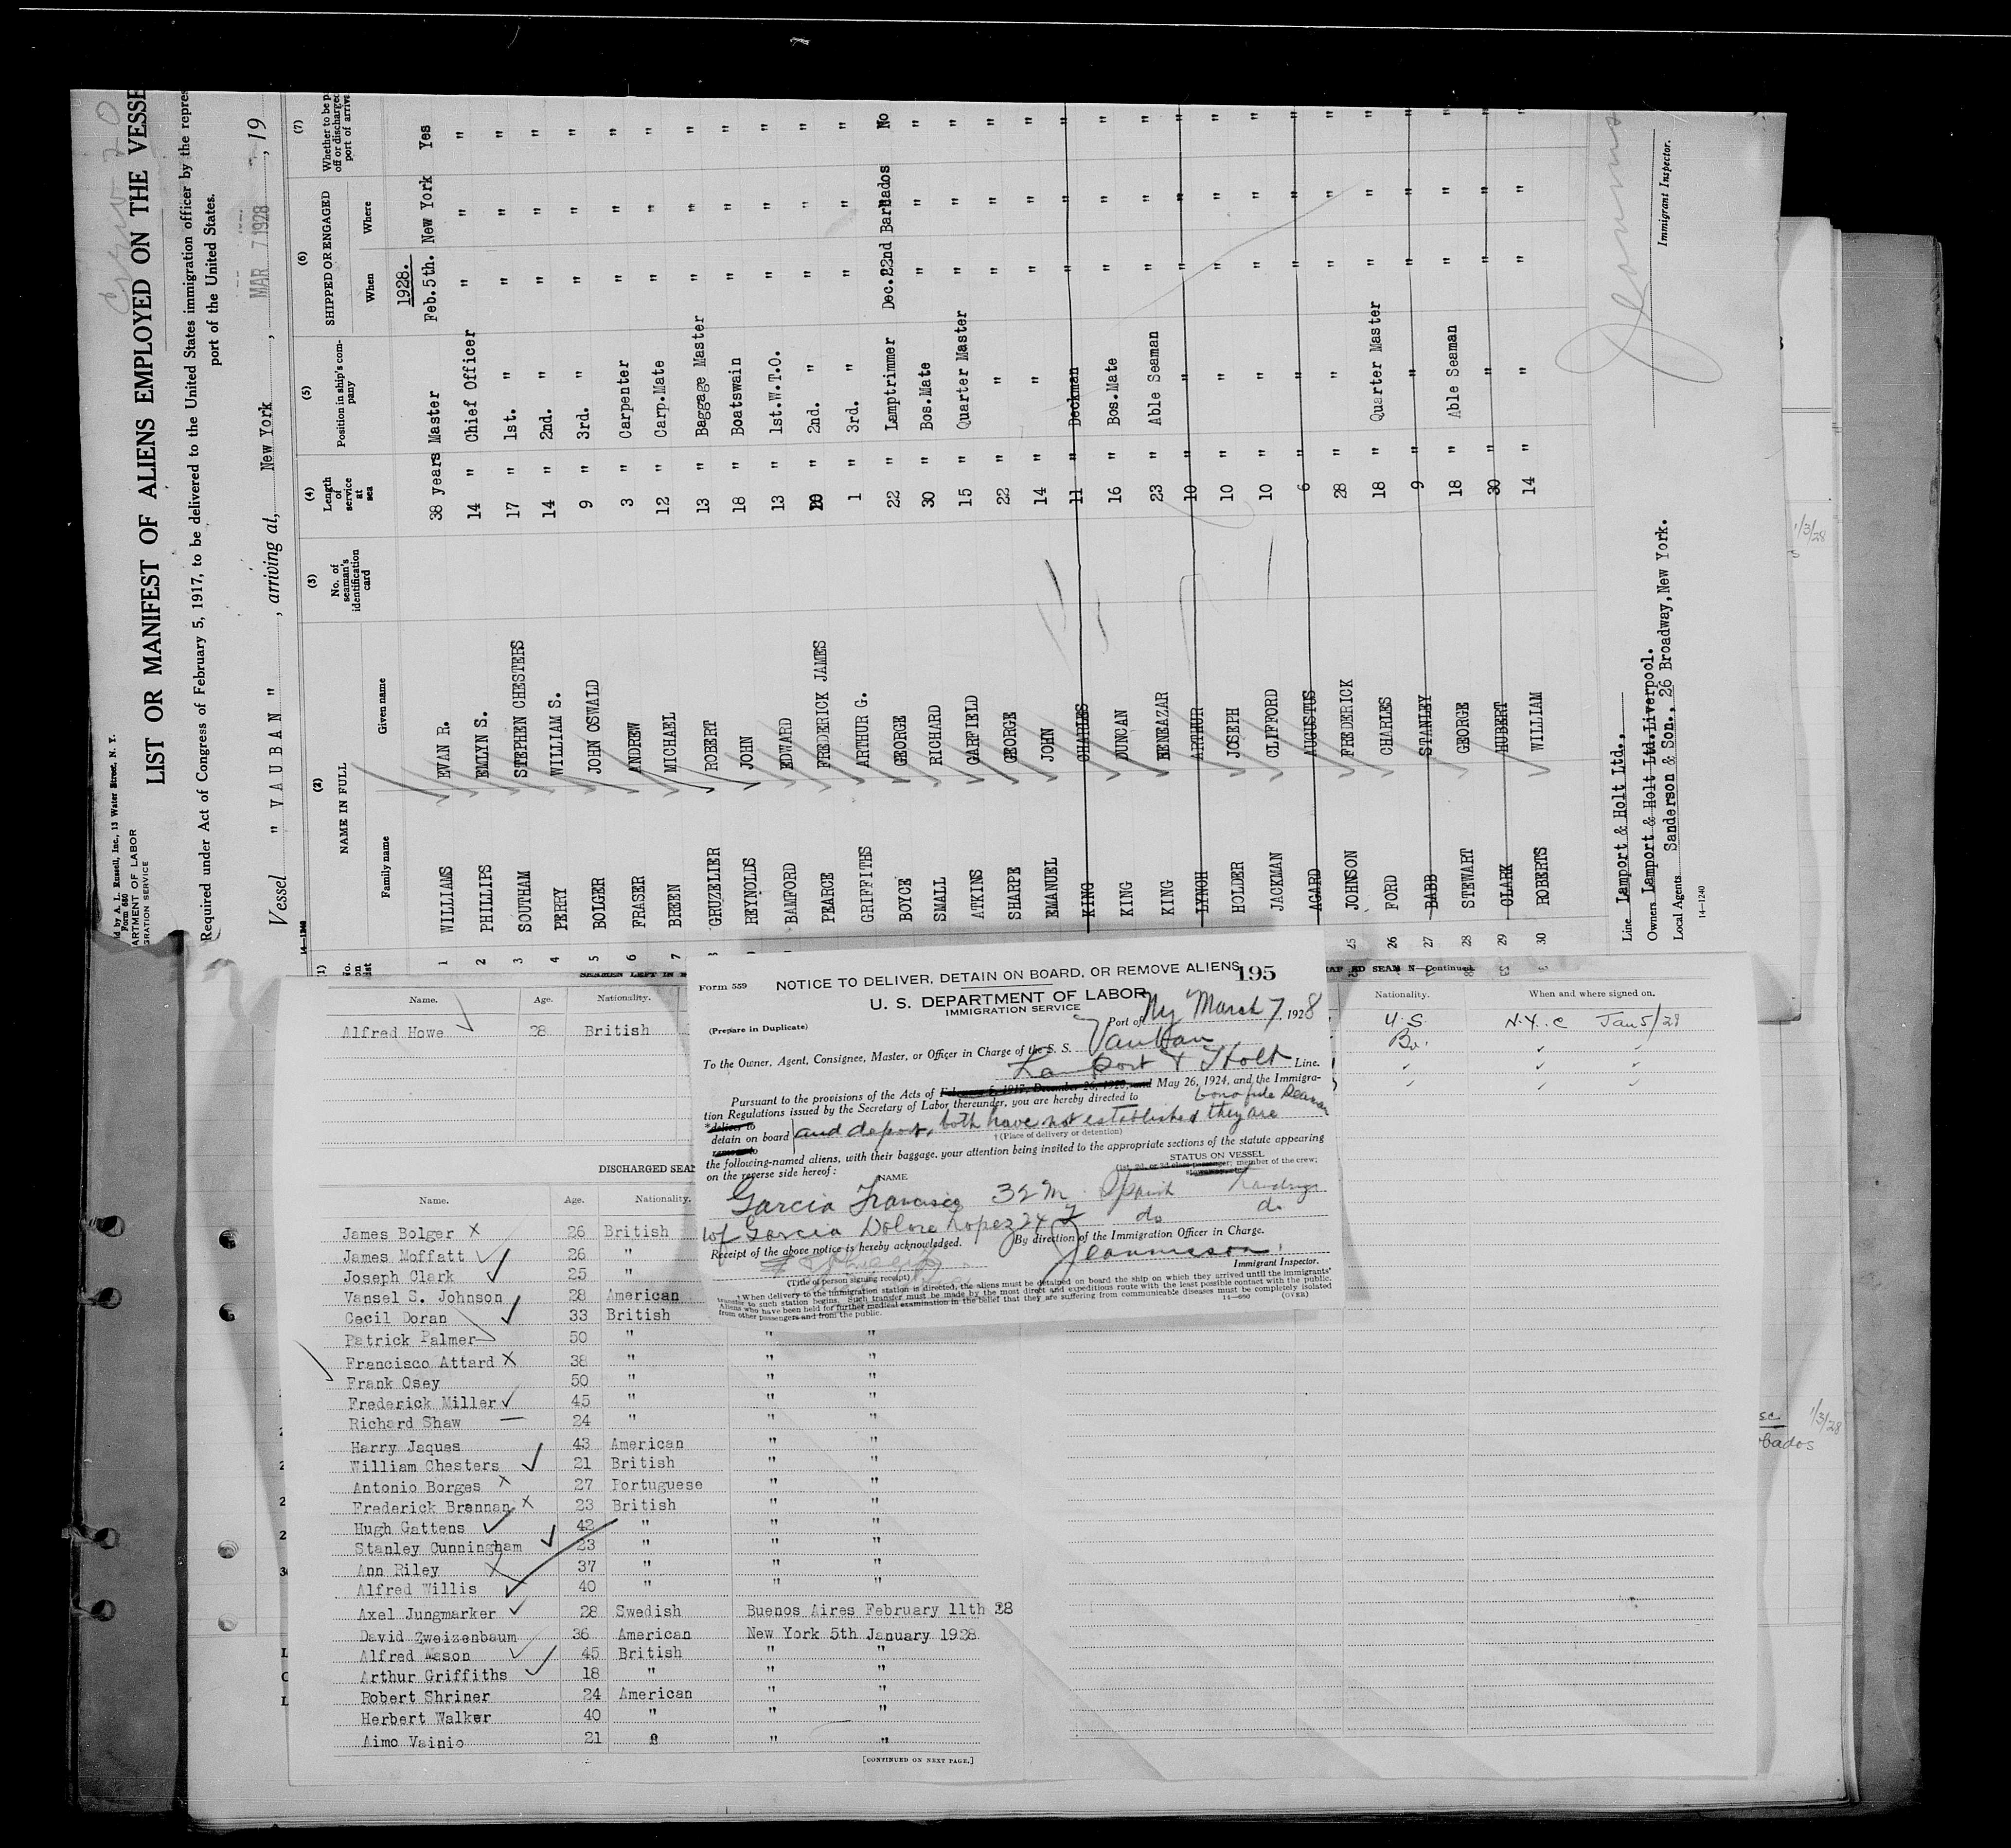 LIST OR MANIFEST OF ALIENS EMPLOYED ON THE VESSE
Required under Act of Congress of February 5, 1917, to be delivered to the United States immigration officer by the repres
port of the United States.
Vessel " VAUBAN ", arriving at, New York, MAR 7 1928, 19
14-1240
(1) (2) (3) (4) (5) (6) (7)
No. on list NAME IN FULL No. of seaman's identification card Length of service at sea Position in ship's company SHIPPED OR ENGAGED Whether to be p off or discharged port of arriva
Family name Given name When Where
1928.
1 WILLIAMS EVAN R. 38 years Master Feb.5th. New York Yes
2 PHILLIPS EMLYN S. 14 " Chief Officer " " "
3 SOUTHAM STEPHEN CHESTERS 17 " 1st. " " " "
4 PERRY WILLIAM S. 14 " 2nd. " " " "
5 BOLGER JOHN OSWALD 9 " 3rd. " " " "
6 FRASER ANDREW 3 " Carpenter " " "
7 BREEN MICHAEL 12 " Carp.Mate " " "
GRUZELIER ROBERT 13 " Baggage Master " " "
REYNOLDS JOHN 18 " Boatswain " " "
BAMFORD EDWARD 13 " 1st.W.T.O. " " "
PEARCE FREDERICK JAMES " 2nd. " " " "
GRIFFITHS ARTHUR G. 1 " 3rd. " " " "
BOYCE GEORGE 22 " Lamptrimmer Dec.22nd Barbados No
SMALL RICHARD 30 " Bos.Mate " " "
ATKINS GARFIELD 15 " Quarter Master " " "
SHARPE GEORGE 22 " " " " "
EMANUEL JOHN 14 " " " " "
KING CHARLES 11 " Deckman " " "
KING DUNCAN 16 " Bos.Mate " " "
KING EENEAZAR 23 " Able Seaman " " "
LYNCH ARTHUR 10 " " " " "
HOLDER JOSEPH 10 " " " " "
JACKMAN CLIFFORD 10 " " " " "
AGARD AUGUSTUS 6 " " " " "
25 JOHNSON FREDERICK 28 " " " " "
26 FORD CHARLES 18 " Quarter Master " " "
27 BABB STANLEY 9 " " " " "
28 STEWART GEORGE 18 " Able Seaman " " "
29 CLARK HUBERT 30 " " " " "
30 ROBERTS WILLIAM 14 " " " " "
Line Lamport & Holt Ltd.,
Owners Lamport & Holt Ltd.Liverpool.
Local Agents Sanderson & Son., 26 Broadway, New York.
14-1240
Immigrant Inspector.
Form 559 NOTICE TO DELIVER, DETAIN ON BOARD, OR REMOVE ALIENS 195
U. S. DEPARTMENT OF LABOR
IMMIGRATION SERVICE
(Prepare in Duplicate) Port of Ny March 7, 1928
To the Owner, Agent, Consignee, Master, or Officer in Charge of the S. S. Vauban
Lamport & Holt Line.
Pursuant to the provisions of the Acts of February 5, 1917, December 26, 1920, and May 26, 1924, and the Immigra-
tion Regulations issued by the Secretary of Labor thereunder, you are hereby directed to bona fide Seaman
*deliver to
detain on board and deport, both have not established they are
remove to
† (Place of delivery or detention)
the following-named aliens, with their baggage, your attention being invited to the appropriate sections of the statute appearing
on the reverse side hereof:
NAME STATUS ON VESSEL
(1st, 2d, or 3d class passenger; member of the crew; stowaway, etc.)
Garcia Francisco 32 M Spanish
wf Garcia Dolore Lopez 24 F do do
Receipt of the above notice is hereby acknowledged. By direction of the Immigration Officer in Charge.
Immigrant Inspector.
(Title of person signing receipt)
† When delivery to the immigration station is directed, the aliens must be detained on board the ship on which they arrived until the immigrants'
transfer to such station begins. Such transfer must be made by the most direct and expeditious route with the least possible contact with the public.
Aliens who have been held for further medical examination in the belief that they are suffering from communicable diseases must be completely isolated
from other passengers and from the public. 14-660 (OVER)
Name. Age. Nationality.
Alfred Howe 28 British
Nationality. When and where signed on.
U.S. N.Y.C Jan 5/28
Br.
DISCHARGED SEA
Name. Age. Nationality.
James Bolger 26 British
James Moffatt 26 "
Joseph Clark 25 "
Vansel S. Johnson 28 American
Cecil Doran 33 British
Patrick Palmer 50 " " "
Francisco Attard 38 " " "
Frank Osey 50 " " "
Frederick Miller 45 " " "
Richard Shaw 24 " " "
Harry Jaques 43 American " "
William Chesters 21 British " "
Antonio Borges 27 Portuguese " "
Frederick Brennan 23 British " "
Hugh Gattens 42 " " "
Stanley Cunningham 23 " " "
Ann Riley 37 " " "
Alfred Willis 40 " " "
Axel Jungmarker 28 Swedish Buenos Aires February 11th 28
David Zweizenbaum 36 American New York 5th January 1928
Alfred Mason 45 British " "
Arthur Griffiths 18 " " "
Robert Shriner 24 American " "
Herbert Walker 40 " " "
Aimo Vainio 21 " " "
[CONTINUED ON NEXT PAGE.]
1/3/28
1/3/28
bados